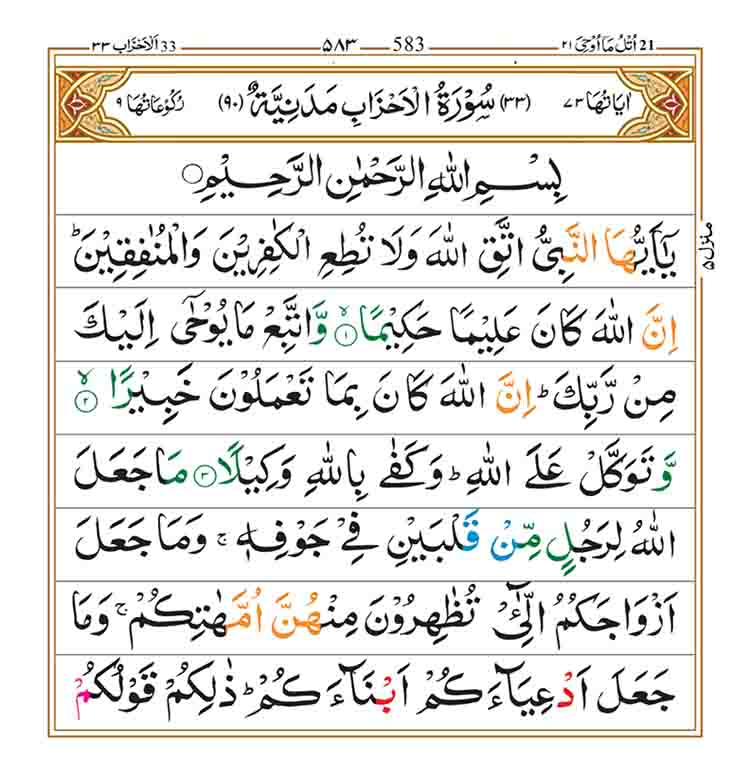 اُتْلُ مَاۤ اُوْحِیَ ٢١ 21 583 ٥٨٣ اَلْاَحْزَاب ٣٣ 33
اٰیَاتُهَا ٧٣ (٣٣) سُوْرَةُ الْاَحْزَابِ مَدَنِیَّةٌ (٩٠) رُكُوْعَاتُهَا ٩
بِسْمِ اللّٰهِ الرَّحْمٰنِ الرَّحِیْمِ○
یٰۤاَیُّهَا النَّبِیُّ اتَّقِ اللّٰهَ وَلَا تُطِعِ الْكٰفِرِیْنَ وَالْمُنٰفِقِیْنَ ؕ
اِنَّ اللّٰهَ كَانَ عَلِیْمًا حَكِیْمًا ۙ﴿١﴾ وَّاتَّبِعْ مَا یُوْحٰۤی اِلَیْكَ
مِنْ رَّبِّكَ ؕ اِنَّ اللّٰهَ كَانَ بِمَا تَعْمَلُوْنَ خَبِیْرًا ۙ﴿٢﴾
وَّتَوَكَّلْ عَلَی اللّٰهِ ؕ وَكَفٰی بِاللّٰهِ وَكِیْلًا ﴿٣﴾ مَا جَعَلَ
اللّٰهُ لِرَجُلٍ مِّنْ قَلْبَیْنِ فِیْ جَوْفِهٖ ۚ وَمَا جَعَلَ
اَزْوَاجَكُمُ الّٰٓـِٔیْ تُظٰهِرُوْنَ مِنْهُنَّ اُمَّهٰتِكُمْ ۚ وَمَا
جَعَلَ اَدْعِیَآءَكُمْ اَبْنَآءَكُمْ ؕ ذٰلِكُمْ قَوْلُكُمْ
منزل ٥